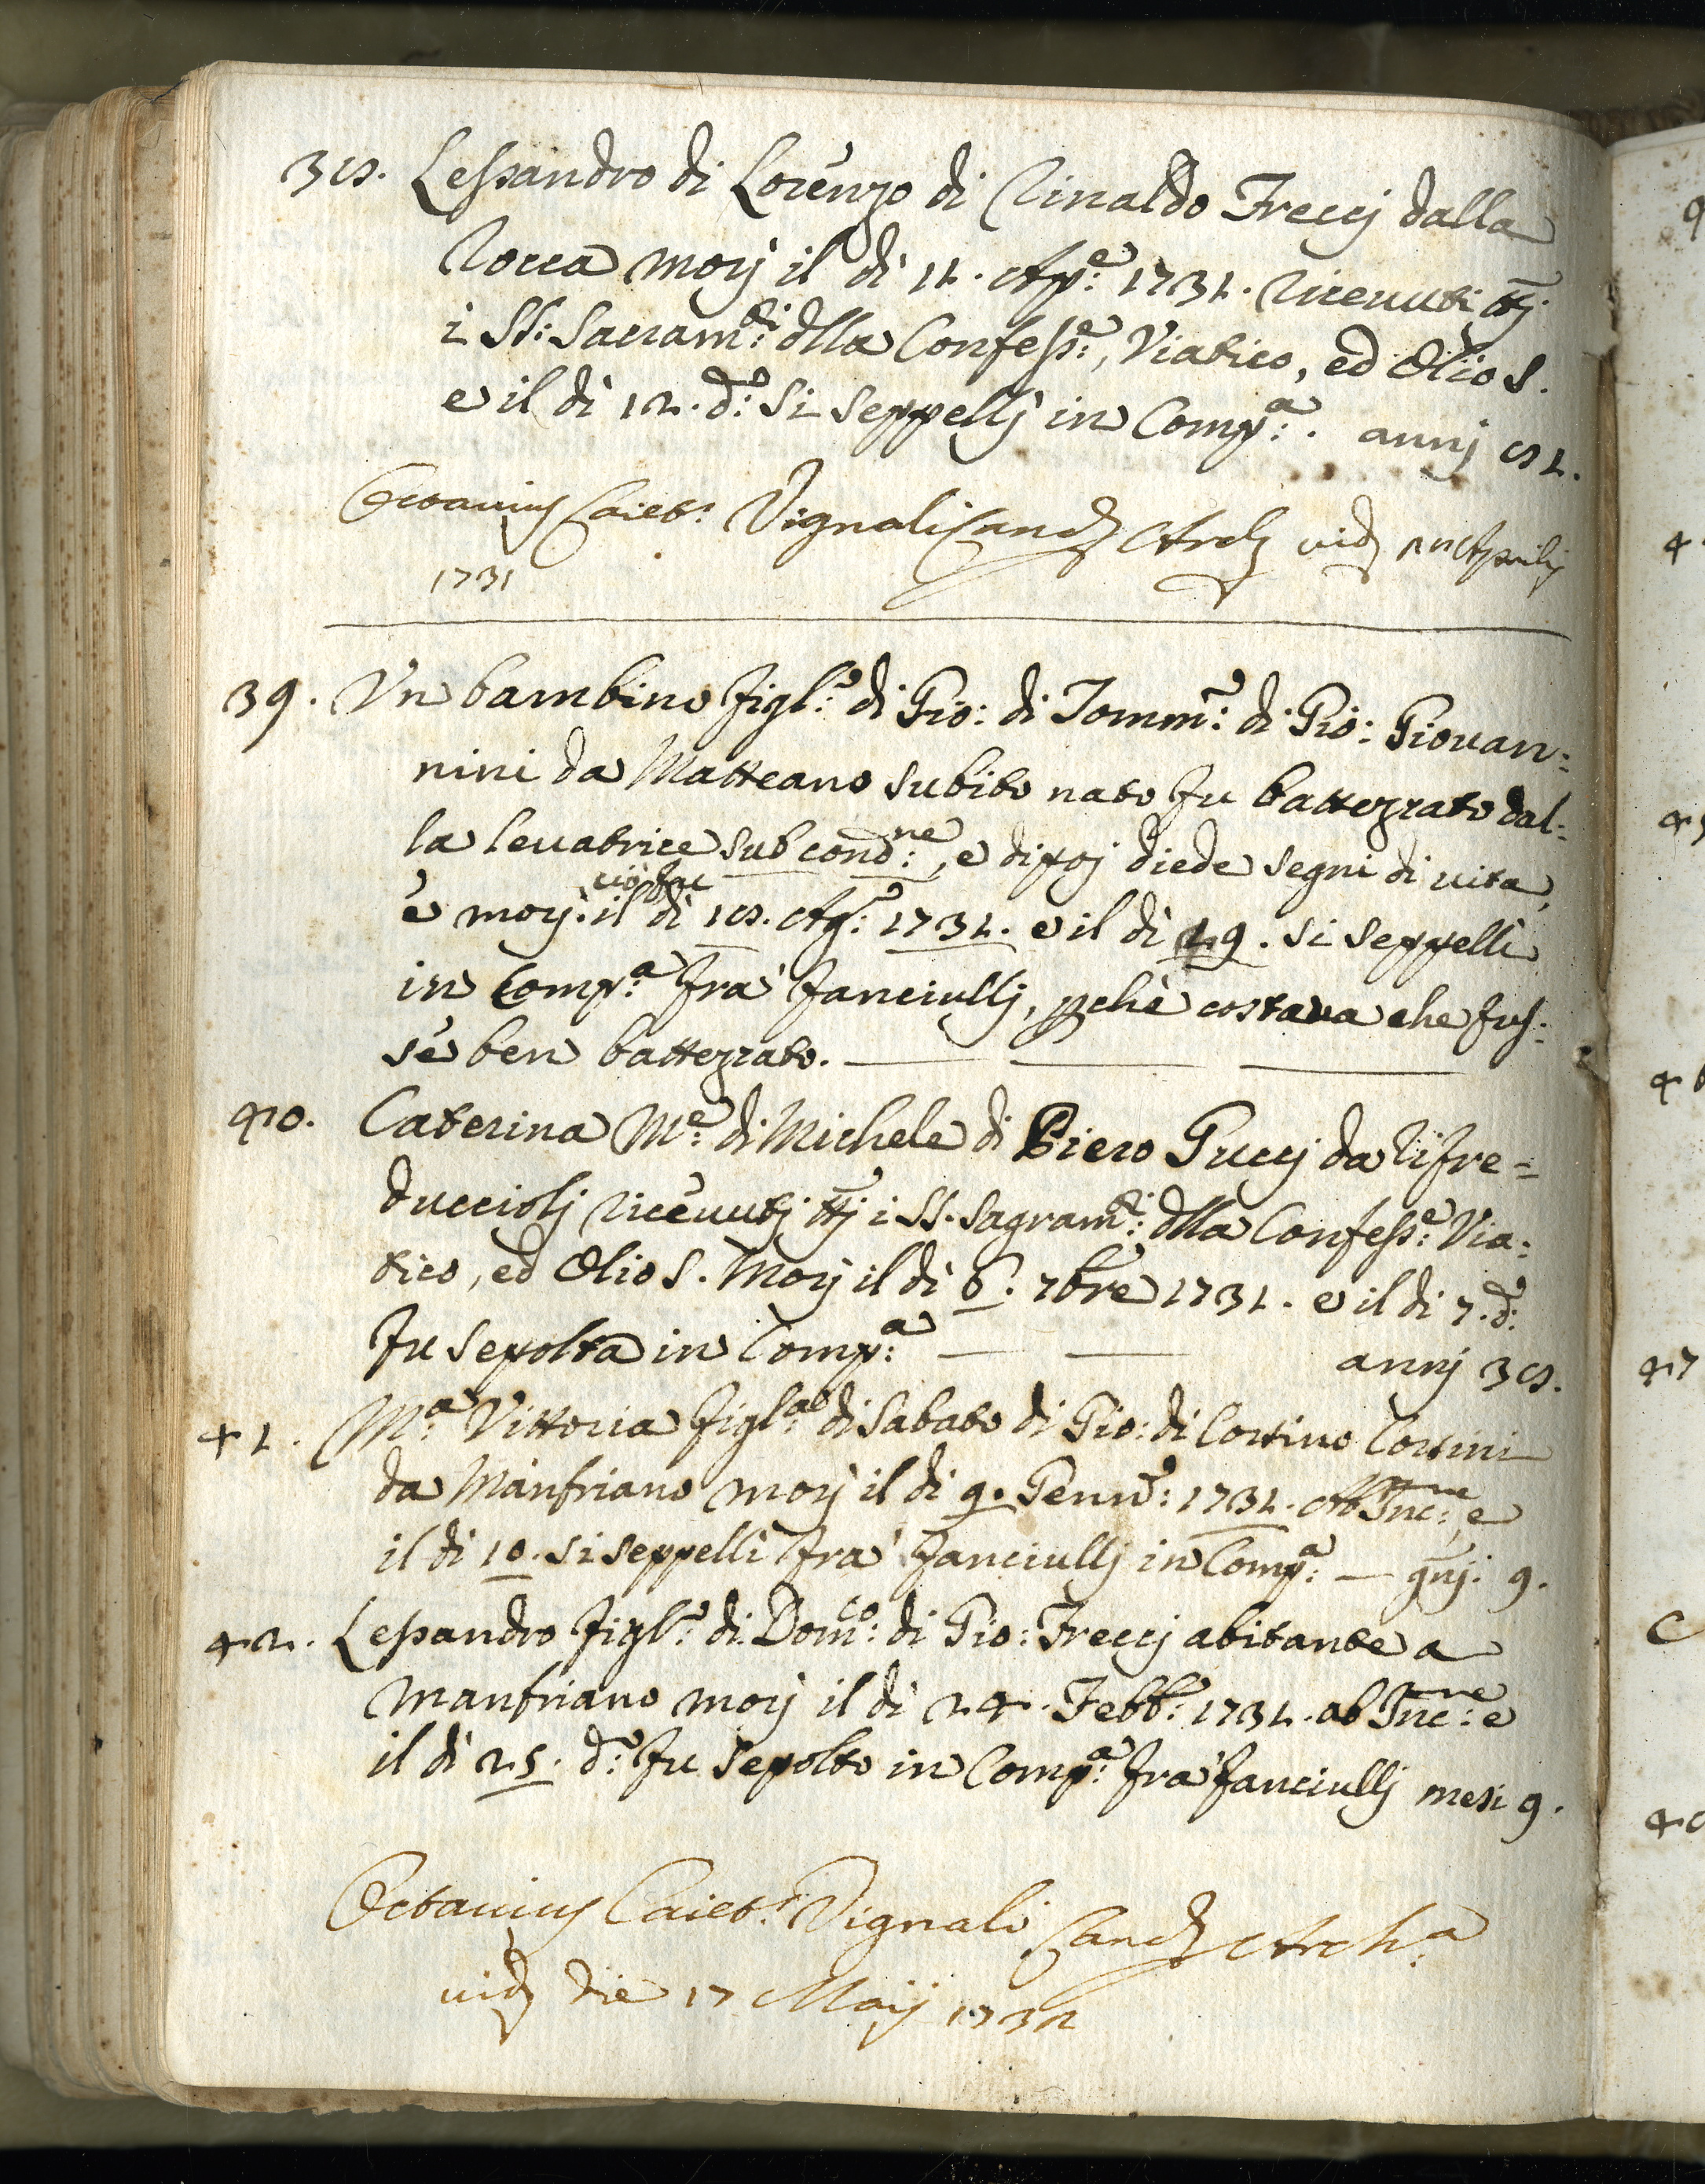 38. Lessandro di Lorenzo di Rinaldo Freccj dalla
Rocca morj il dì 11. Ap:e 1731. ricevuti ttj
i SS: Sacram:ti dlla Confess:e, Viatico, ed Olio S.
e il dì 12. d:o si seppellj in Comp:a. annj 81.
Octavius Caiet:s Vignali Cand Arch vid Aprilis
1731
39. Vn bambino figl:o di Gio: di Tomm:o di Gio: Giovan:
nini da Matteano subito nato fu battezzato dal:
la levatrice sub cond:ne, e dipoj diede segni di vita,
e morj il dì 18. Ag:o 1731. e il dì 19. si seppellì
in Comp:a frà fanciullj, pchè costava che fus:
se ben battezzato.
40. Caterina M:e di Michele di Piero Guccj da Rifre=
ducciolj ricevutj ttj i SS. Sagram:ti dlla Confess:e Via:
tico, ed Olio S. Morj il dì 6. 7bre 1731. e il dì 7. d:o
fu sepolta in Comp:a annj 38.
41. M:a Vittoria figl:a di Sabato di Gio: di Corsino Corsini
da Manfriano morj il dì 9. Genn:o 1731. Ab Inc:ne, e
il dì 10. si seppellì frà fanciullj in Comp:a — gnj. 9.
42. Lessandro figl:o di Dom:co di Gio: Freccj abitante a
Manfriano morj il dì 24. Febb:o 1731. ab Inc:ne e
il dì 25. d:o fu sepolto in Comp:a frà fanciullj mesi 9.
Octavius Caiet:s Vignali Cand Arch:a
vid die 17 Maij 1732